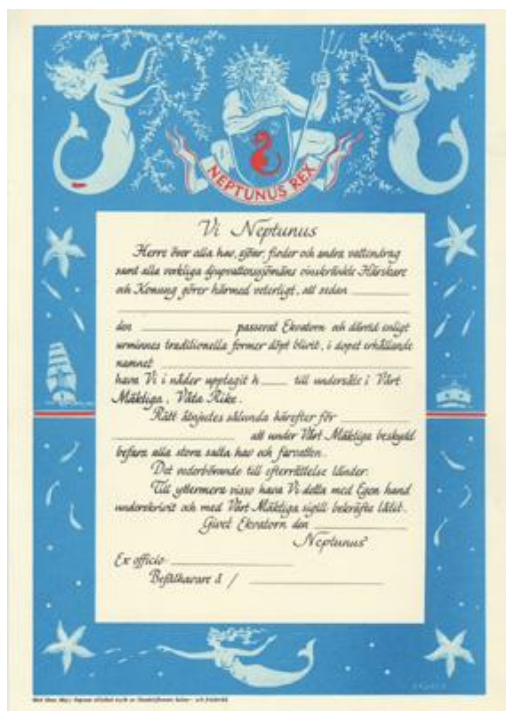 NEPTUNUS REX
Vi Neptunus
Herre över alla hav, sjöar, floder och andra vattendrag
samt alla verkliga djupvattenssjömäns oinskränkte Härskare
och Konung görer härmed veterligt, att sedan
den passerat Ekvatorn och därvid enligt
urminnes traditionella former döpt blivit, i dopet erhållande
namnet
hava Vi i nåder upptagit h till undersåte i Vårt
Mäktiga, Våta Rike.
Rätt åtnjutes sålunda härefter för
att under Vårt Mäktiga beskydd
befara alla stora salta hav och farvatten.
Det vederbörande till efterrättelse länder.
Till yttermera visso hava Vi detta med Egen hand
underskrivit och med Vårt Mäktiga sigill bekräfta låtit.
Givet Ekvatorn den
Neptunus
Ex officio
Befälhavare å /